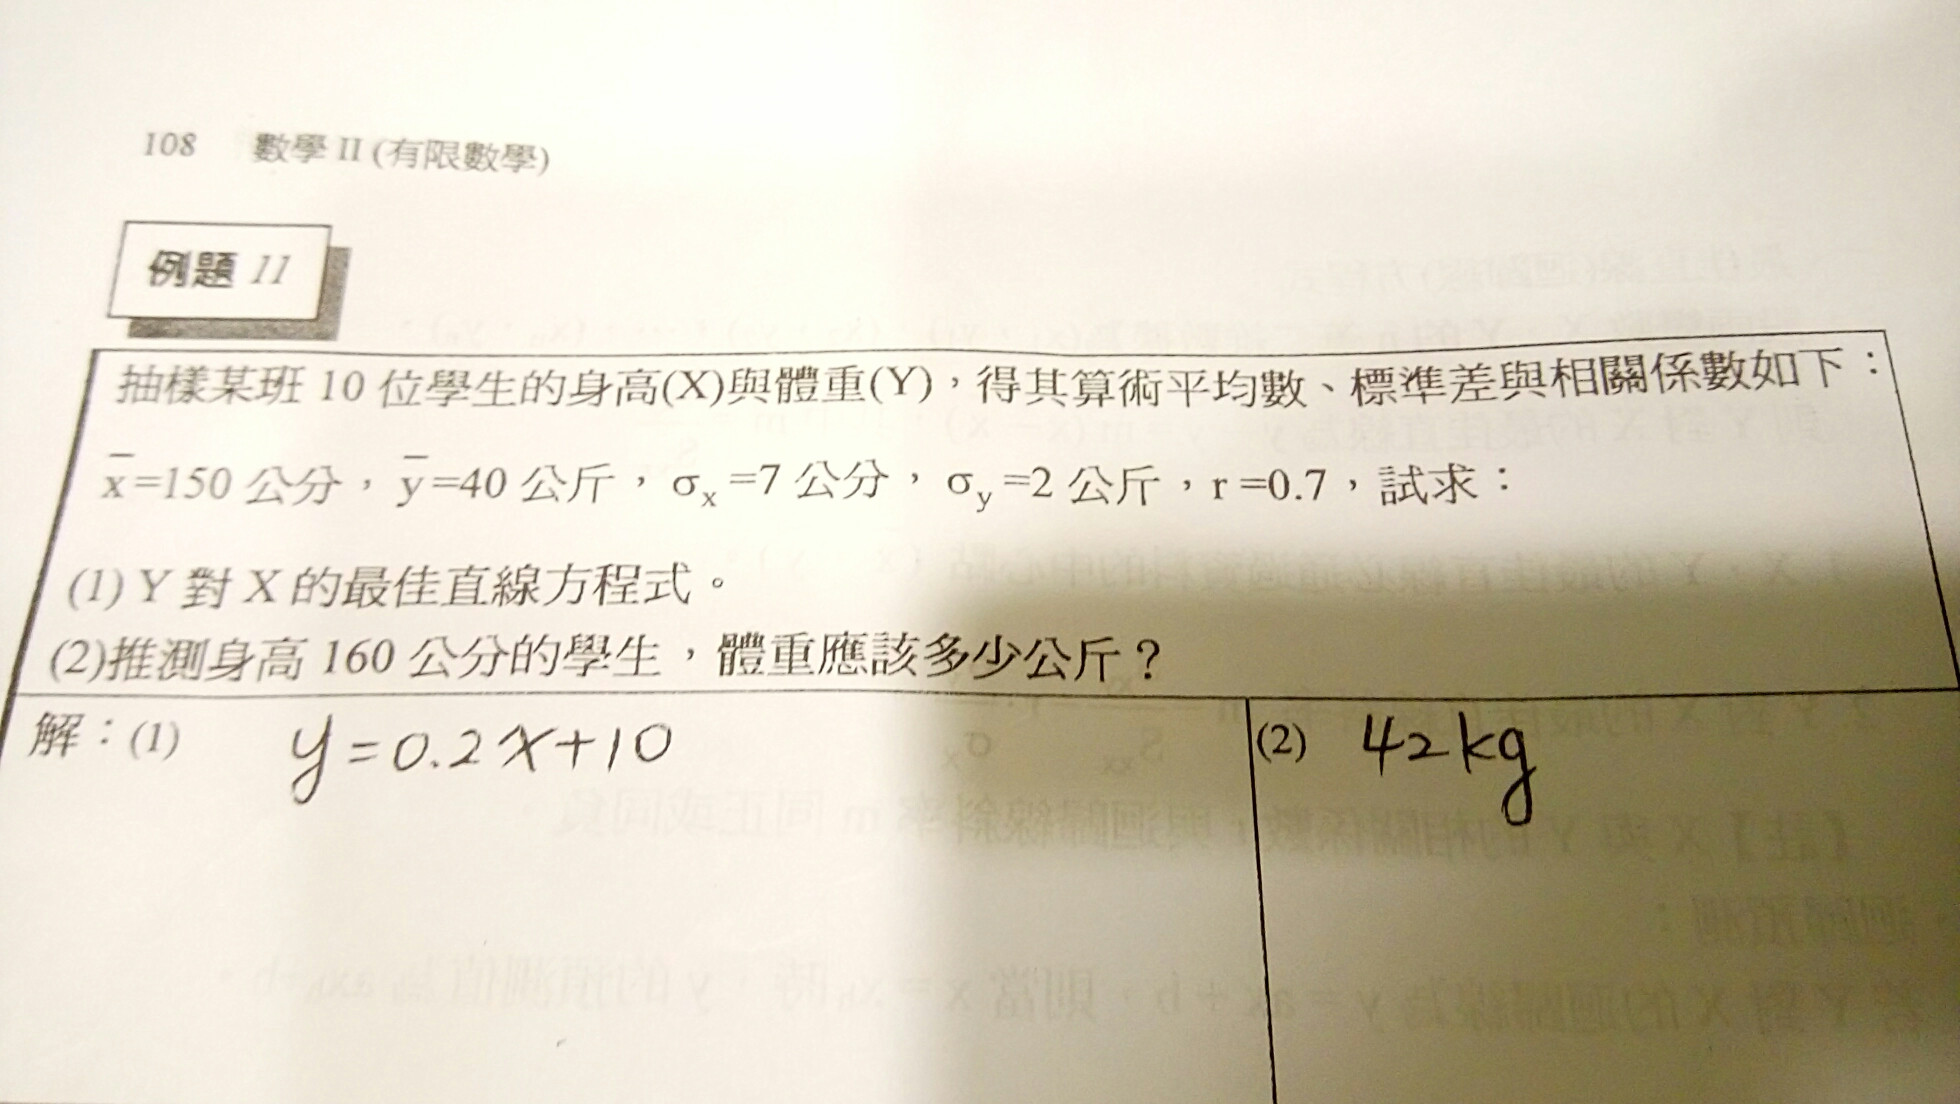 108 數學 II (有限數學)
例題 11
抽樣某班 10 位學生的身高(X)與體重(Y)，得其算術平均數、標準差與相關係數如下：
x̄=150 公分，ȳ=40 公斤，σx=7 公分，σy=2 公斤，r=0.7，試求：
(1) Y 對 X 的最佳直線方程式。
(2)推測身高 160 公分的學生，體重應該多少公斤？
解：(1) y=0.2x+10
(2) 42kg